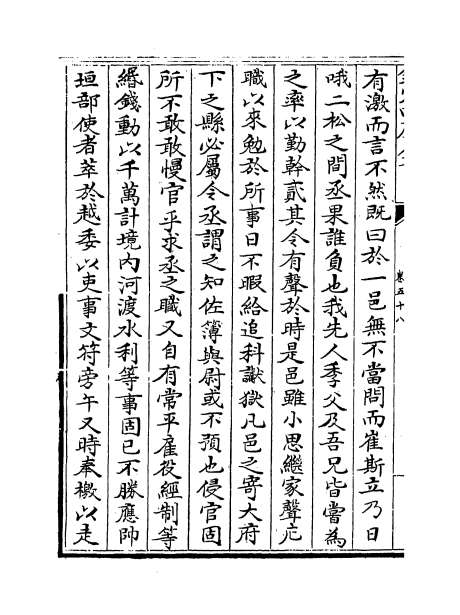 有激而言不然既曰於一邑無不當問而崔斯立乃日
哦二松之間丞果誰負也我先人季父及吾兄皆嘗為
之率以勤幹貳其令有聲於時是邑雖小思繼家聲庀
職以來勉於所事日不暇給追科讞獄凡邑之寄大府
下之縣必屬令丞謂之知佐簿與尉或不預也侵官固
所不敢敢慢官乎求丞之職又自有常平雇役經制等
緡錢動以千萬計境內河渡水利等事固已不勝應帥
垣部使者萃於越委以吏事文符旁午又時奉檄以走
卷五十八